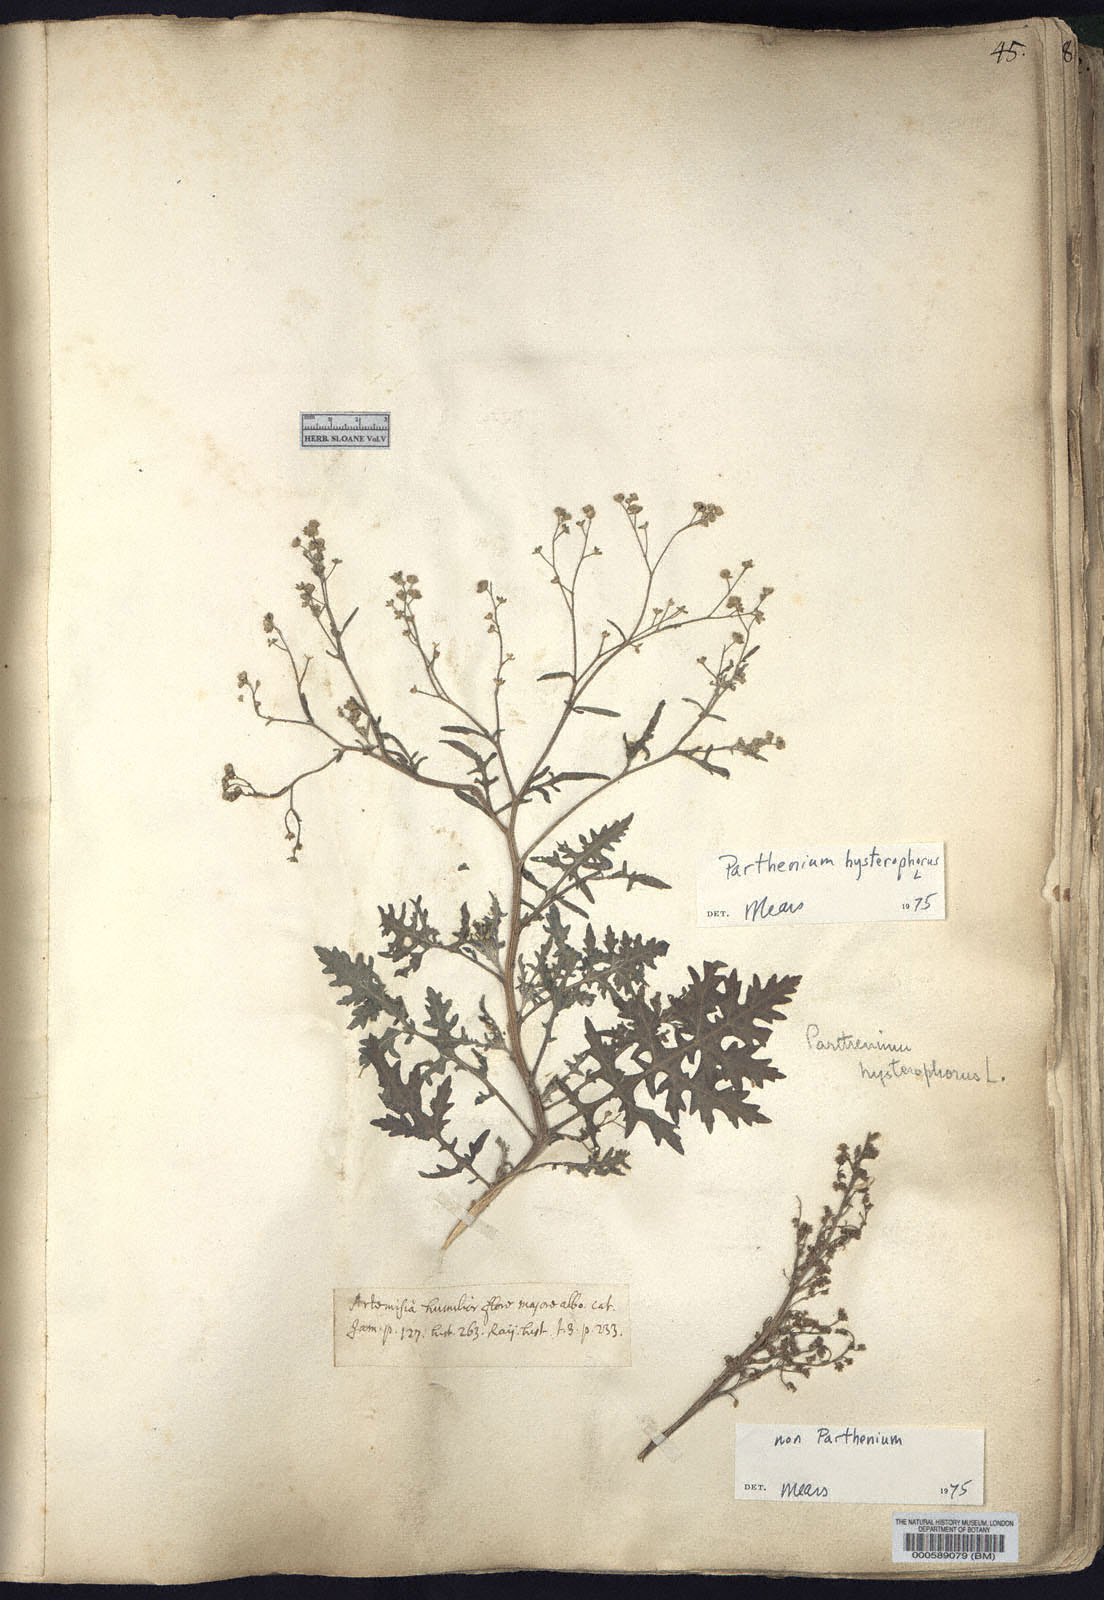 45.
8
HERB. SLOANE Vol.V
Parthenium hysterophorus
L
DET. Mears 1975
Parthenium
hysterophorus L.
Artemisia humilior flore majore albo. cat.
Jam. p. 127. hist. 263. Raij. hist. t.3. p. 233.
non Parthenium
DET. Mears 1975
THE NATURAL HISTORY MUSEUM, LONDON
DEPARTMENT OF BOTANY
000589079 (BM)